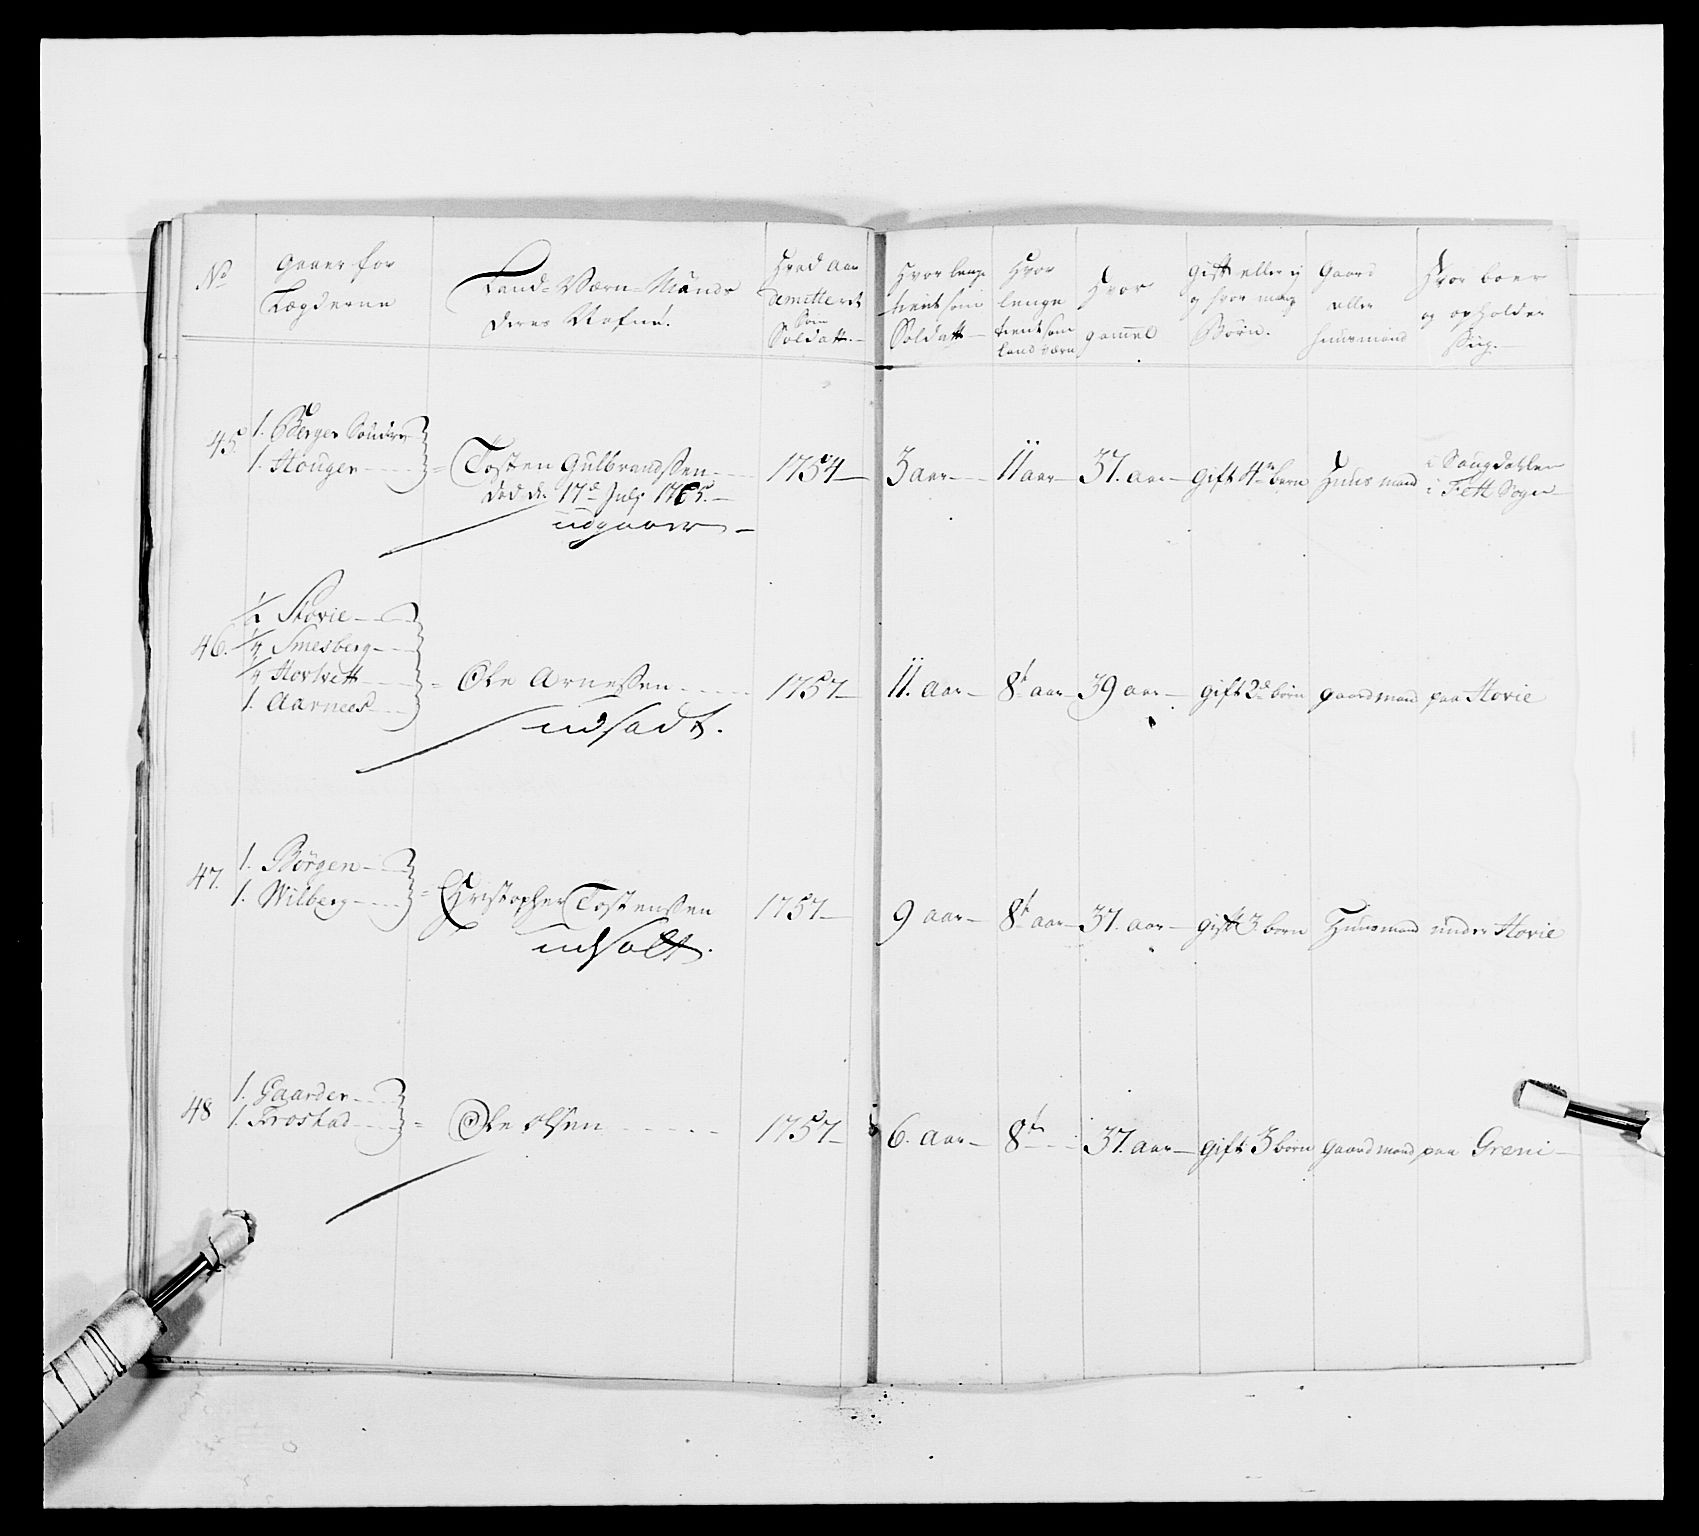 No
Gaver for
Lægderne
Land-Værn-Mands
deres Nafne.
Hvad Aar
dimitterede
som
Soldatt.
Hvor lenge
tient som
Soldatt
Hvor
lenge
tient som
Land værn
Hvor
gammel
Gift eller ej
og hvor mang
Børn.
Gaard
eller
Huusmand
Hvor boer
og opholder
Siig.
45. 1. Berger Søndre
1. Houger
= Tosten Gulbrandssen
død d. 17d July 1765.
udgaaer
1754 3 aar 11 aar 37. aar gift 4 børn Huusmand
i Fett Sogn
46. 1/2 Hovie
1/4 Smesberg
1/4 Horkett
1. Aarnees
= Ole Arnessen
udsadt.
1757 11. aar 8t aar 39 aar gift 2d børn gaardmand paa Hovie
47. 1. Börgen
1. Wilberg
= Christopher Tostenssen
udsatt.
1757 9 aar 8t aar 37. aar gift 3 børn Huusmand under Hovie
48 1. Gaarder
1. Frostad
= Ole Olsen
1757 6. aar 8t 37. aar gift 3 børn gaardmand paa Greni